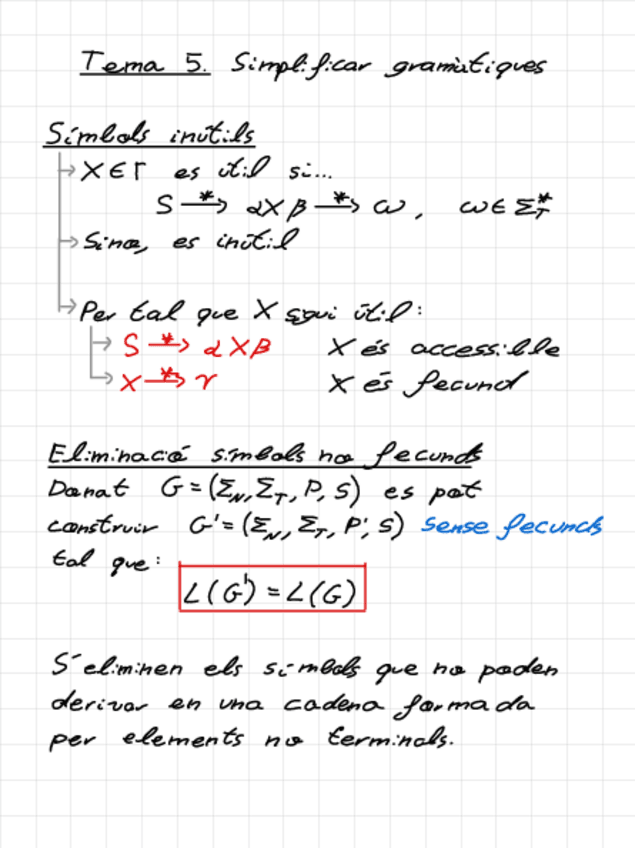 Tema 5. Simplificar gramàtiques
Símbols inútils
X ∈ Γ es útil si...
S →* αXβ →* ω, ω ∈ Σ_T^*
Sino, es inútil
Per tal que X sgui útil:
S →* αXβ X és accessible
X →* γ X és fecund
Eliminació símbols no fecunds
Donat G = (Σ_N, Σ_T, P, S) es pot
construir G' = (Σ_N, Σ_T, P', S) sense fecunds
tal que:
L(G') = L(G)
S'eliminen els símbols que no poden
derivar en una cadena formada
per elements no terminals.